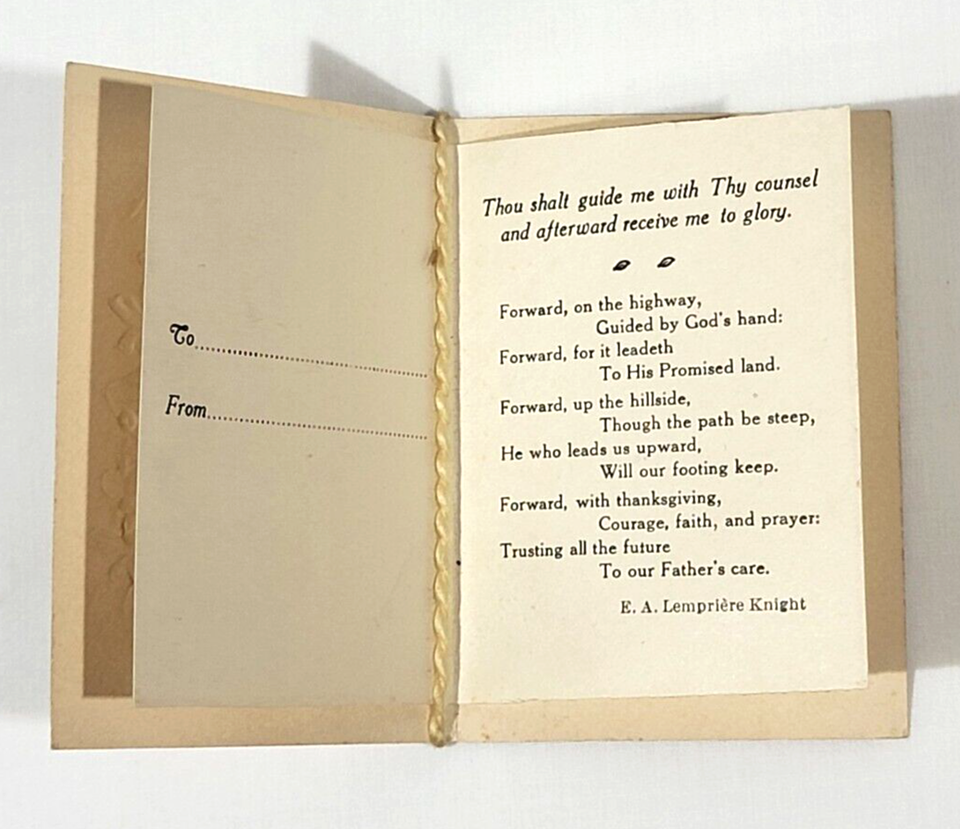 To
From
Thou shalt guide me with Thy counsel
and afterward receive me to glory.
Forward, on the highway,
Guided by God's hand:
Forward, for it leadeth
To His Promised land.
Forward, up the hillside,
Though the path be steep,
He who leads us upward,
Will our footing keep.
Forward, with thanksgiving,
Courage, faith, and prayer:
Trusting all the future
To our Father's care.
E. A. Lemprière Knight